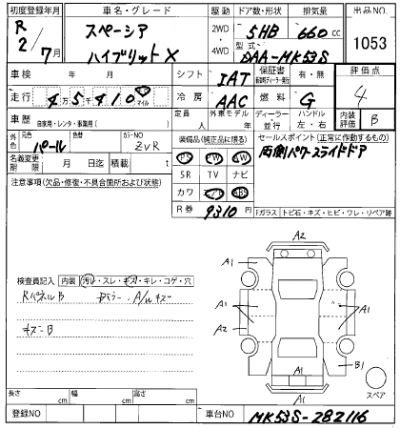 初度登録年月 車名・グレード 駆動 ドア数・形状 排気量 出品NO
R2/7月 スペーシア ハイブリッドX 2WD 4WD 5HB 660cc 1053
型式 DAA-MK53S
車検 年 月 シフト IAT 保証書 有・無 評価点
走行 4万5千410 マイル 冷房 AAC 燃料 G 4
車歴 自家用・レンタ・事業用( ) 定員 人 外車モデル 年 ディーラー 並行 ハンドル 左・右 内装評価 B
外色 元色 パール カラーNO ZVR 装備品(純正品に限る) セールスポイント(正常に作動するもの)
PS PW 両側パワースライドドア
名義変更期限 月 日迄 積載 t SR TV ナビ
注意事項(欠品・修復・不具合箇所および状態) カワ ABS
R券 9310円 Fガラス トビ石・キズ・ヒビ・ワレ・リペア跡
A2
A1 A1
検査員記入 内装 汚れ・スレ・キズ・キレ・コゲ・穴
RパネルB A/Wキズ
A1 A1
キズーB A2
B1
A1
スペア
長さ cm 幅 cm 高さ cm
登録NO 車台NO MK53S-282116